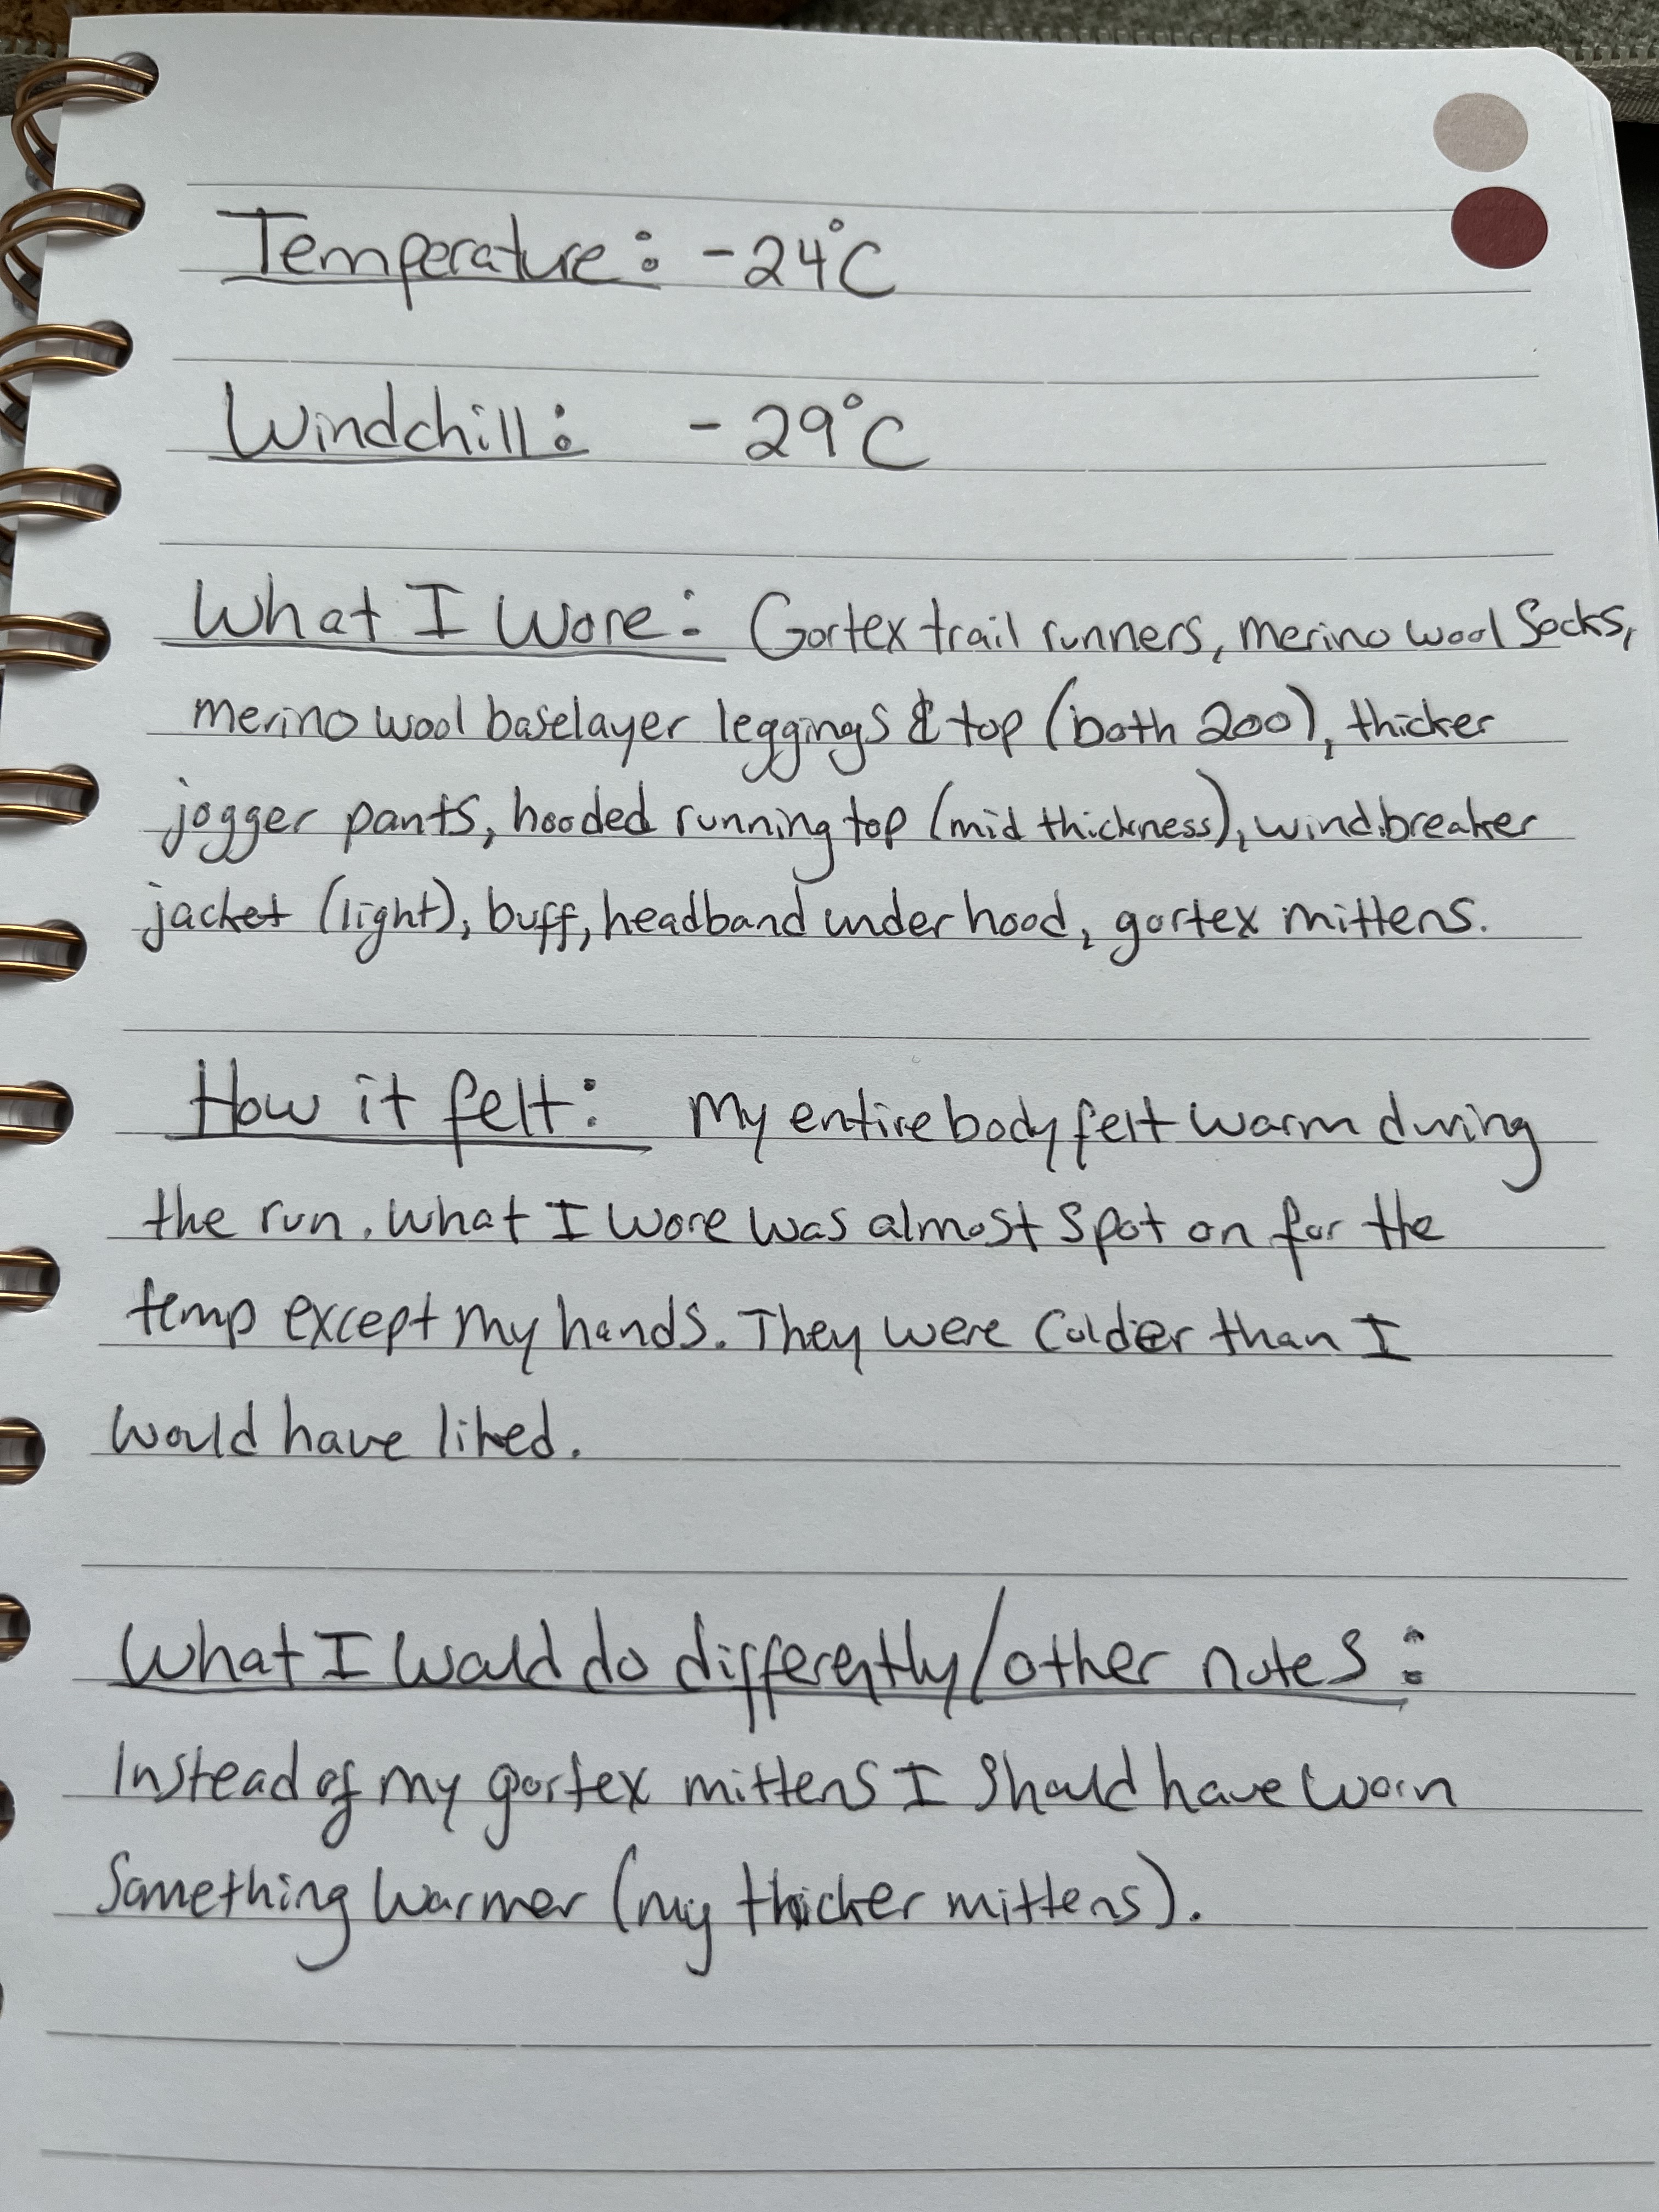 Temperature: -24°C
Windchill: -29°C
What I Wore: Gortex trail runners, merino wool Socks,
merino wool baselayer leggings & top (both 200), thicker
jogger pants, hooded running top (mid thickness), windbreaker
jacket (light), buff, headband under hood, gortex mittens.
How it felt: My entire body felt warm during
the run. What I wore was almost spot on for the
temp except my hands. They were colder than I
would have liked.
What I Would do differently/other notes:
Instead of my gortex mittens I should have worn
Something warmer (my thicker mittens).